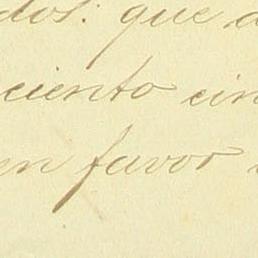 dos: que
ciento cin
en favor